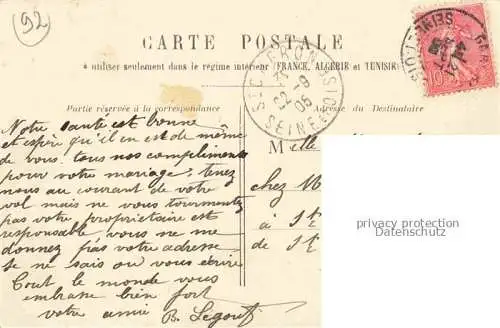 92
CARTE POSTALE
à utiliser seulement dans le régime intérieur (FRANCE, ALGÉRIE et TUNISIE)
Partie réservée à la correspondance
Adresse du Destinataire
Notre santé est bonne
et espère qu'il en est de même
de vous. tous nos compliments
pour votre mariage; tenez
nous au courant de votre
vol mais ne vous tourmentez
pas votre propriétaire est
responsable, vous ne me
donnez pas votre adresse
je ne sais ou vous écrire
Tout le monde vous
embrasse bien fort
votre amie B. Legout
Melle
chez M
à St
de St
SEINE
22 -9
05
10
privacy protection
Datenschutz